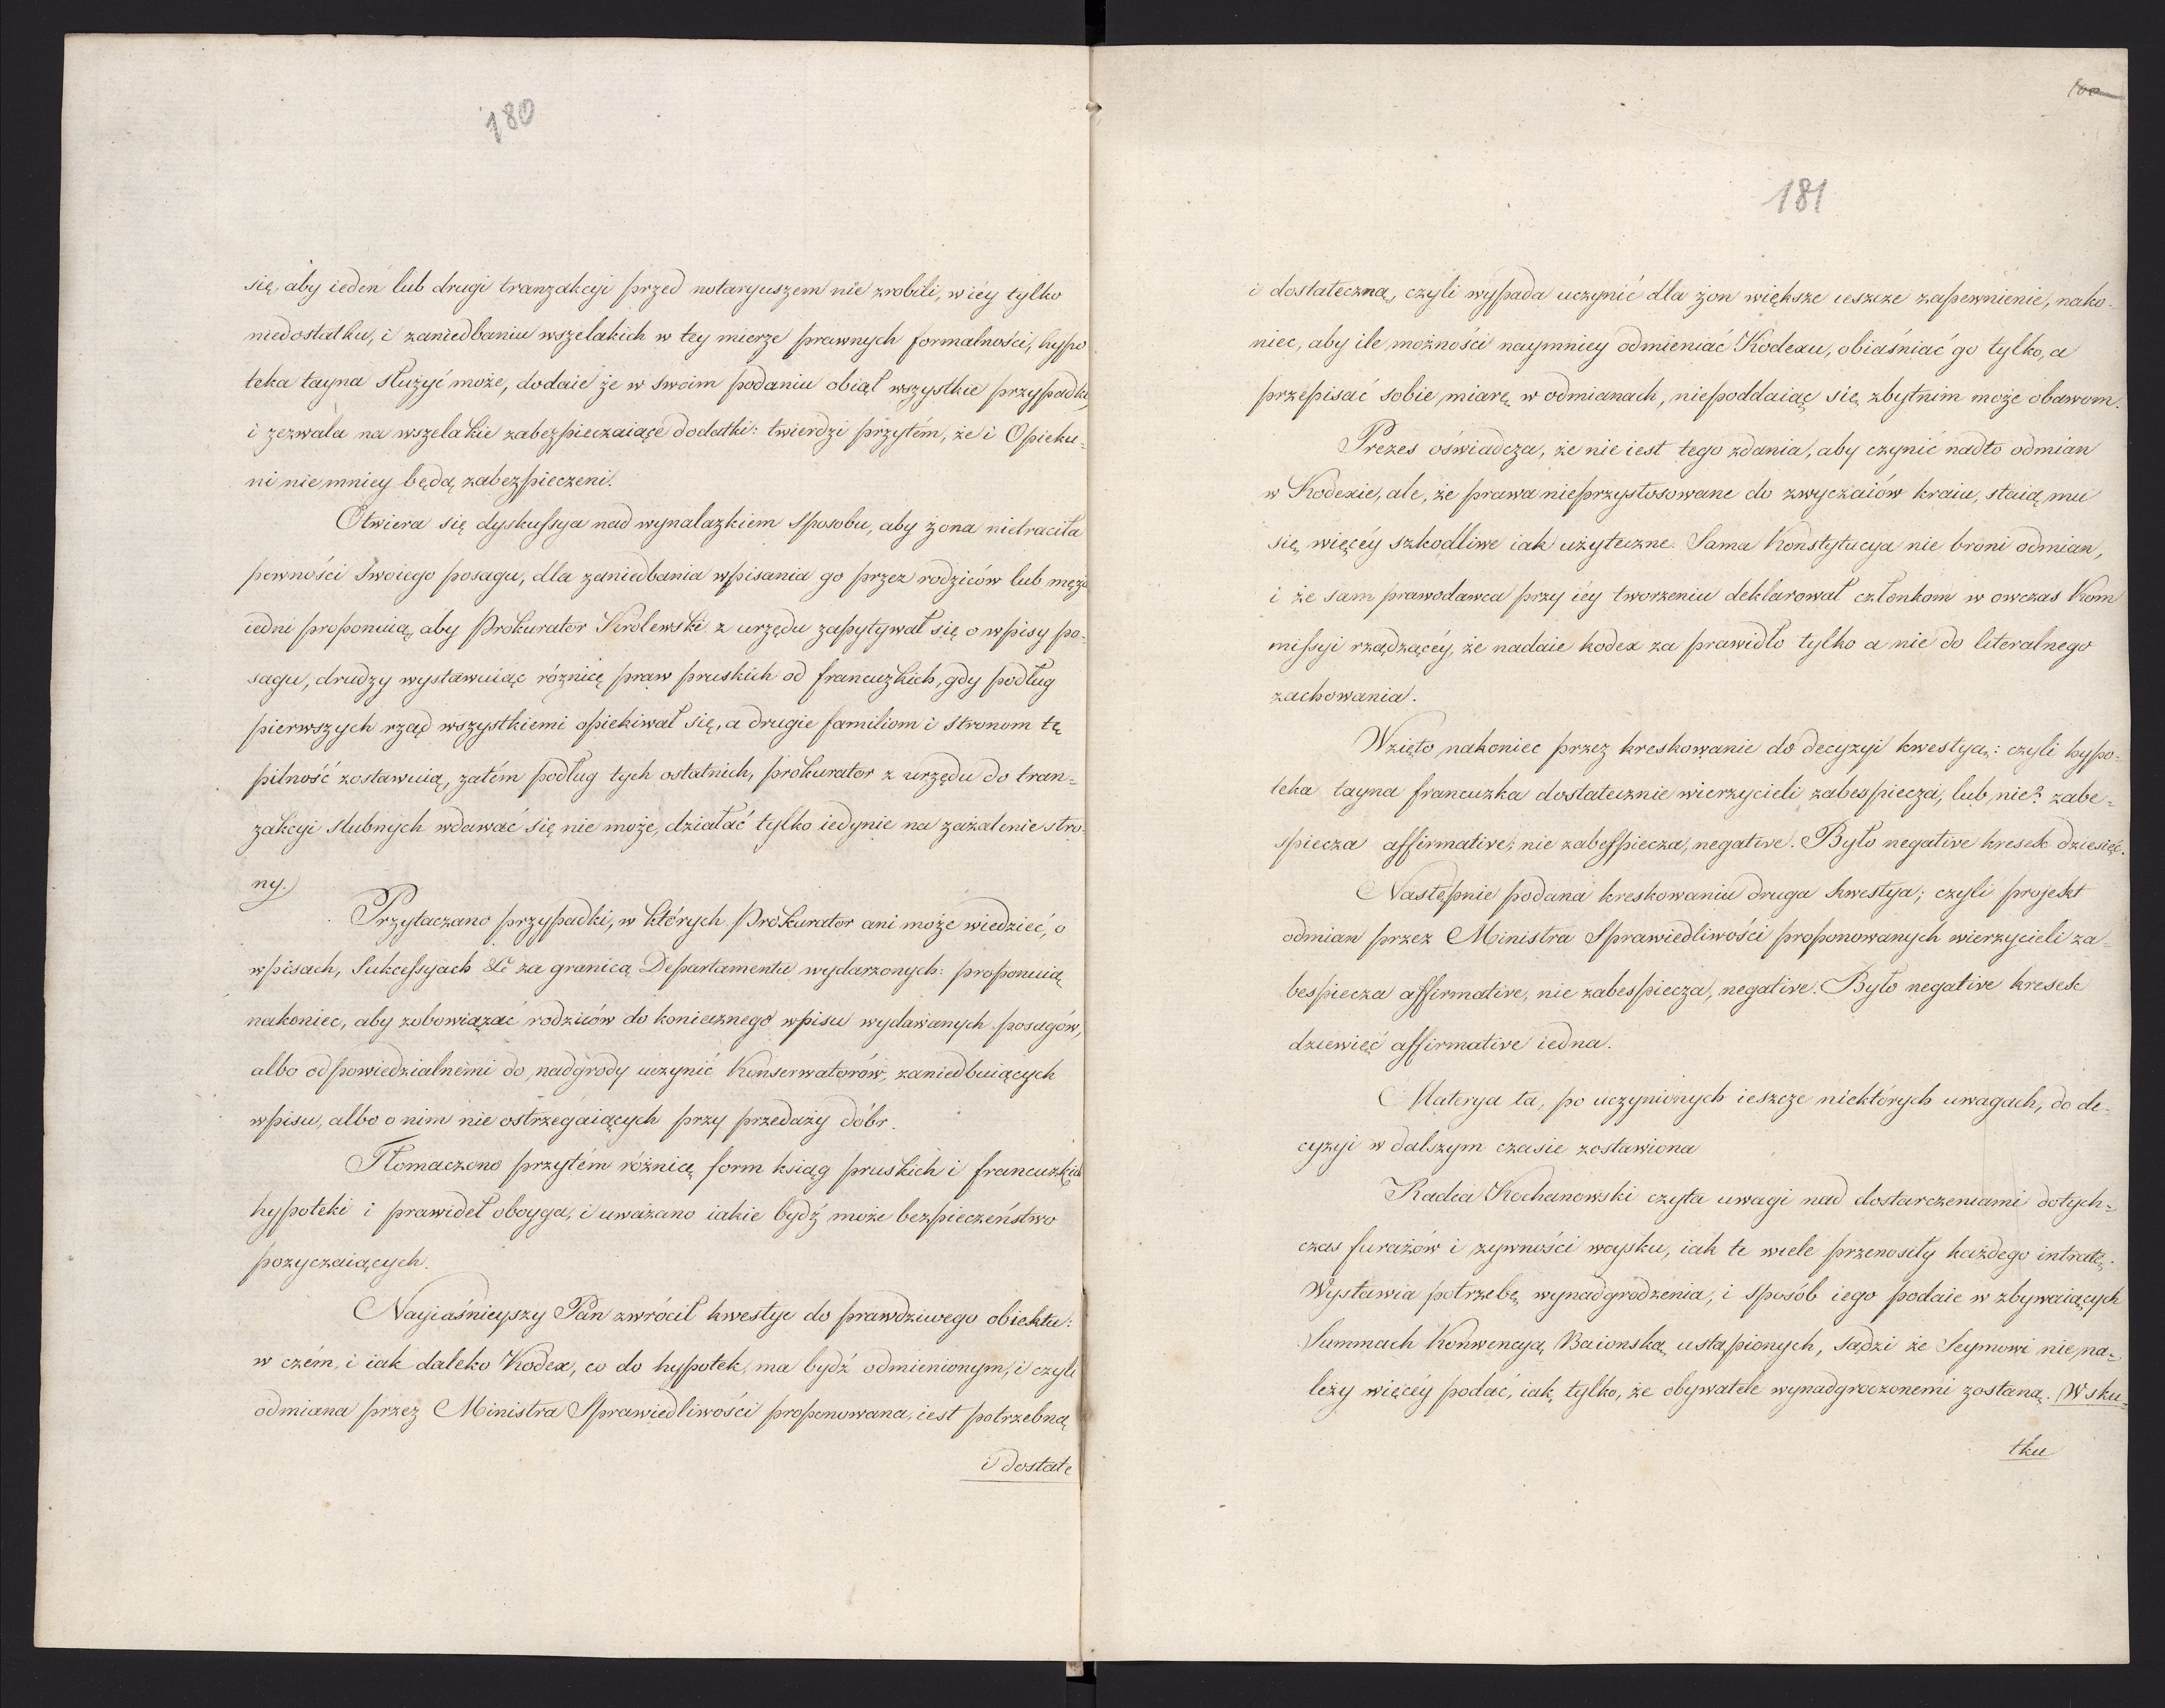 180
się, aby ieden lub drugi tranzakcyi przed notaryuszem nie zrobili, w iéy tylko
niedostatku, i zaniedbaniu wszelakich w tey mierze prawnych formalności, hypo
teka tayna służyć może, dodaie że w swoim podaniu obiął wszystkie przypadki,
i zezwala na wszelakie zabezpieczaiące dodatki: twierdzi przytém, że i Opieku-
ni nie mniey będą zabezpieczeni.
Otwiera się dyskussya nad wynalazkiem sposobu, aby żona nietraciła
pewności swoiego posagu, dla zaniedbania wpisania go przez rodziców lub męża
iedni proponuią, aby Prokurator Królewski z urzędu zapytywał się o wpisy po-
sagu, drudzy wystawuiąc różnicę praw pruskich od francuzkich, gdy podług
pierwszych rząd wszystkiemi opiekiwał się, a drugie familiom i stronom tę
pilność zostawuią, zatém podług tych ostatnich, prokurator z urzędu do tran=
zakcyi slubnych wdawać się nie może, działać tylko iedynie na zażalenie stro-
ny.
Przytaczano przypadki, w których Prokurator ani może wiedzieć, o
wpisach, Sukcessyach &c za granicą Departamentu wydarzonych: proponuią
nakoniec, aby zobowiązać rodziców do koniecznego wpisu wydawanych posagów,
albo odpowiedzialnémi do nadgrody uczynić Konserwatorów, zaniedbuiących
wpisu, albo o nim nie ostrzegaiących przy przedaży dóbr.
Tłomaczono przytém różnicę form ksiąg pruskich i francuzkich
hypoteki i prawideł oboyga, i uważano iakie bydź może bezpieczeństwo
pożyczaiących.
Nayiaśnieyszy Pan zwrócił kwestye do prawdziwego obiektu:
w czém, i iak daleko Kodex, co do hypotek, ma bydź odmienionym, i czyli
odmiana przez Ministra Sprawiedliwości proponowana, iest potrzebną
i dostate
100
181
i dostateczną, czyli wypada uczynić dla żon większe ieszcze zapewnienie, nako-
niec, aby ile możności naymniey odmieniać Kodexu, obiaśniać go tylko, a
przepisać sobie miarę w odmianach, niepoddaiąc się zbytnim może obawom.
Prezes oświadcza, że nie iest tego zdania, aby czynić nadto odmian
w Kodexie, ale, że prawa nieprzystosowane do zwyczaiów kraiu, staią mu
się więcéy szkodliwe iak użyteczne. Sama Konstytucya nie broni odmian,
i że sam prawodawca przy iéy tworzeniu deklarował członkom w owczas Kom
missyi rządzącéy, że nadaie kodex za prawidło tylko a nie do literalnego
zachowania.
Wzięto nakoniec przez kreskowanie do decyzyi kwestyą: czyli hypo-
teka tayna francuzka dostatecznie wierzycieli zabespiecza, lub nie? zabe-
spiecza affirmative, nie zabespiecza, negative. Było negative kresek dziesięć.
Następnie podana kreskowaniu druga kwestya; czyli projekt
odmian przez Ministra Sprawiedliwości proponowanych wierzycieli za-
bespiecza affirmative, nie zabespiecza, negative. Było negative kresek
dziewięć affirmative iedna.
Materya ta, po uczynionych ieszcze niektórych uwagach, do de-
cyzyi w dalszym czasie zostawiona
Radca Kochanowski czyta uwagi nad dostarczeniami dotych=
czas furażów i żywności woysku, iak te wiele przenosiły każdego intratę.
Wystawia potrzebę wynadgrodzenia, i sposób iego podaie w zbywaiących
Summach Konwencyą Baionską ustąpionych, sądzi że Seymowi nie na=
leży więcéy podać, iak tylko, że obywatele wynadgrodzonemi zostaną. W sku=
tku